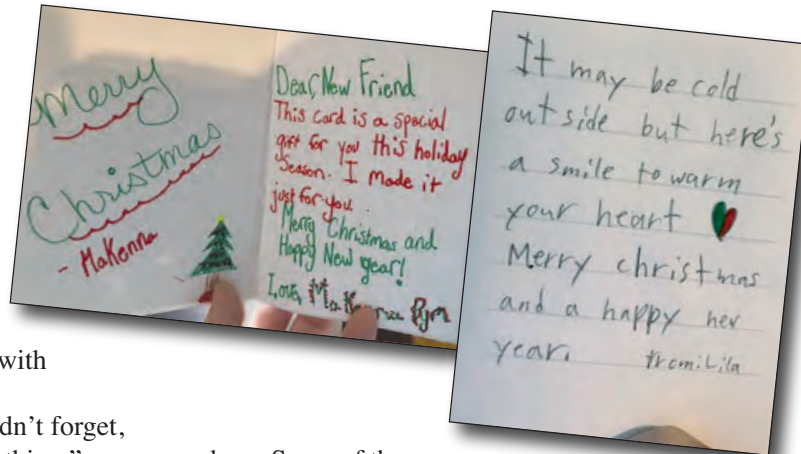 Merry
Christmas
- MaKenna
Dear, New Friend
This card is a special
gift for you this holiday
Season. I made it
just for you.
Merry Christmas and
Happy New year!
Love, MaKenna
It may be cold
outside but here's
a smile to warm
your heart
Merry christmas
and a happy new
year.
from: Lila
with
dn't forget,